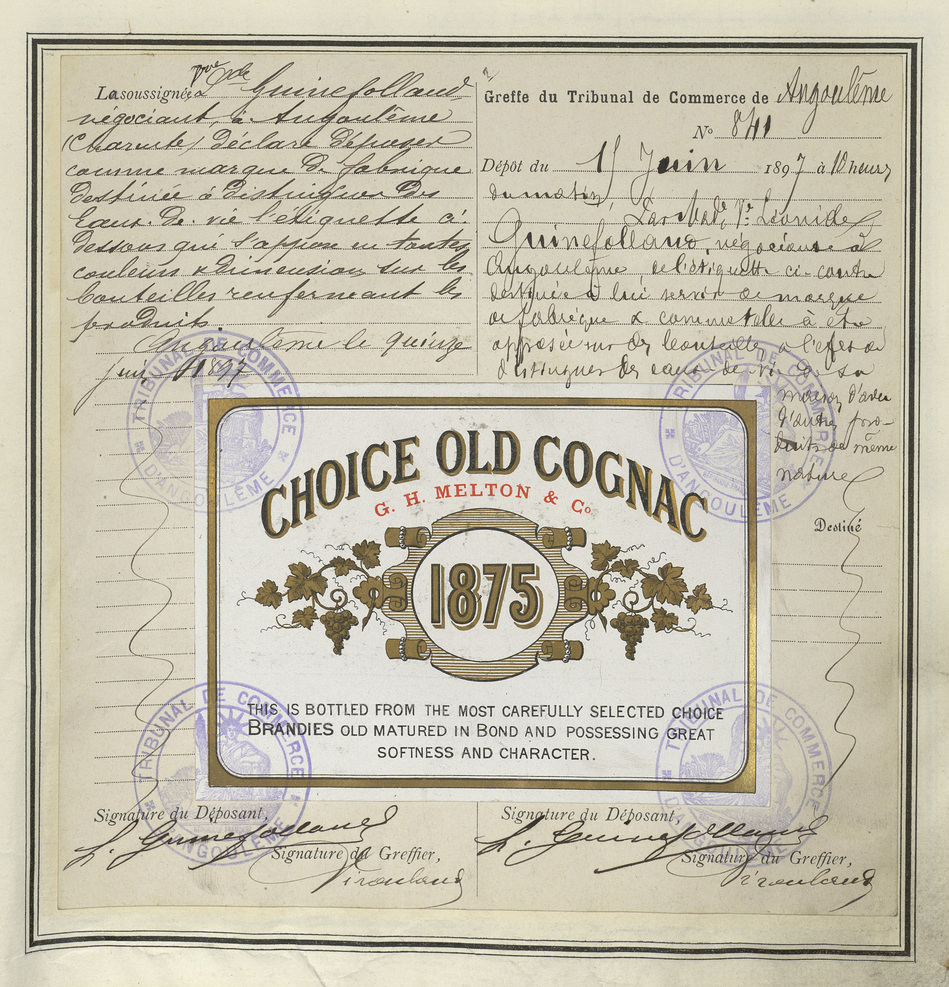 La soussignée Vve de Guinefolland
négociant, à Angoulême
(Charente) déclare déposer
comme marque de fabrique
destinée à distinguer des
Eaux-de-vie l'étiquette ci-
dessous qui s'appose en toutes
couleurs & dimension sur les
bouteilles renfermant les
produits.
Angoulême le quinze
juin 1897
Greffe du Tribunal de Commerce de Angoulême
N° 841
Dépôt du 15 Juin 1897 à 10 heures
du matin,
Vve Léonide
Guinefolland, négociant à
Angoulême, de l'étiquette ci-contre
destinée à lui servir de marque
de fabrique & commerciale à être
apposée sur des bouteilles à l'effet de
distinguer les eaux-de-vie de sa
maison d'avec
d'autres pro-
duits de même
nature
Destiné
CHOICE OLD COGNAC
G. H. MELTON & Co.
1875
THIS IS BOTTLED FROM THE MOST CAREFULLY SELECTED CHOICE
BRANDIES OLD MATURED IN BOND AND POSSESSING GREAT
SOFTNESS AND CHARACTER.
TRIBUNAL DE COMMERCE D'ANGOULÊME
TRIBUNAL DE COMMERCE D'ANGOULÊME
TRIBUNAL DE COMMERCE D'ANGOULÊME
TRIBUNAL DE COMMERCE D'ANGOULÊME
Signature du Déposant,
L. Guinefolland
Signature du Greffier,
Signature du Déposant,
L. Guinefolland
Signature du Greffier,